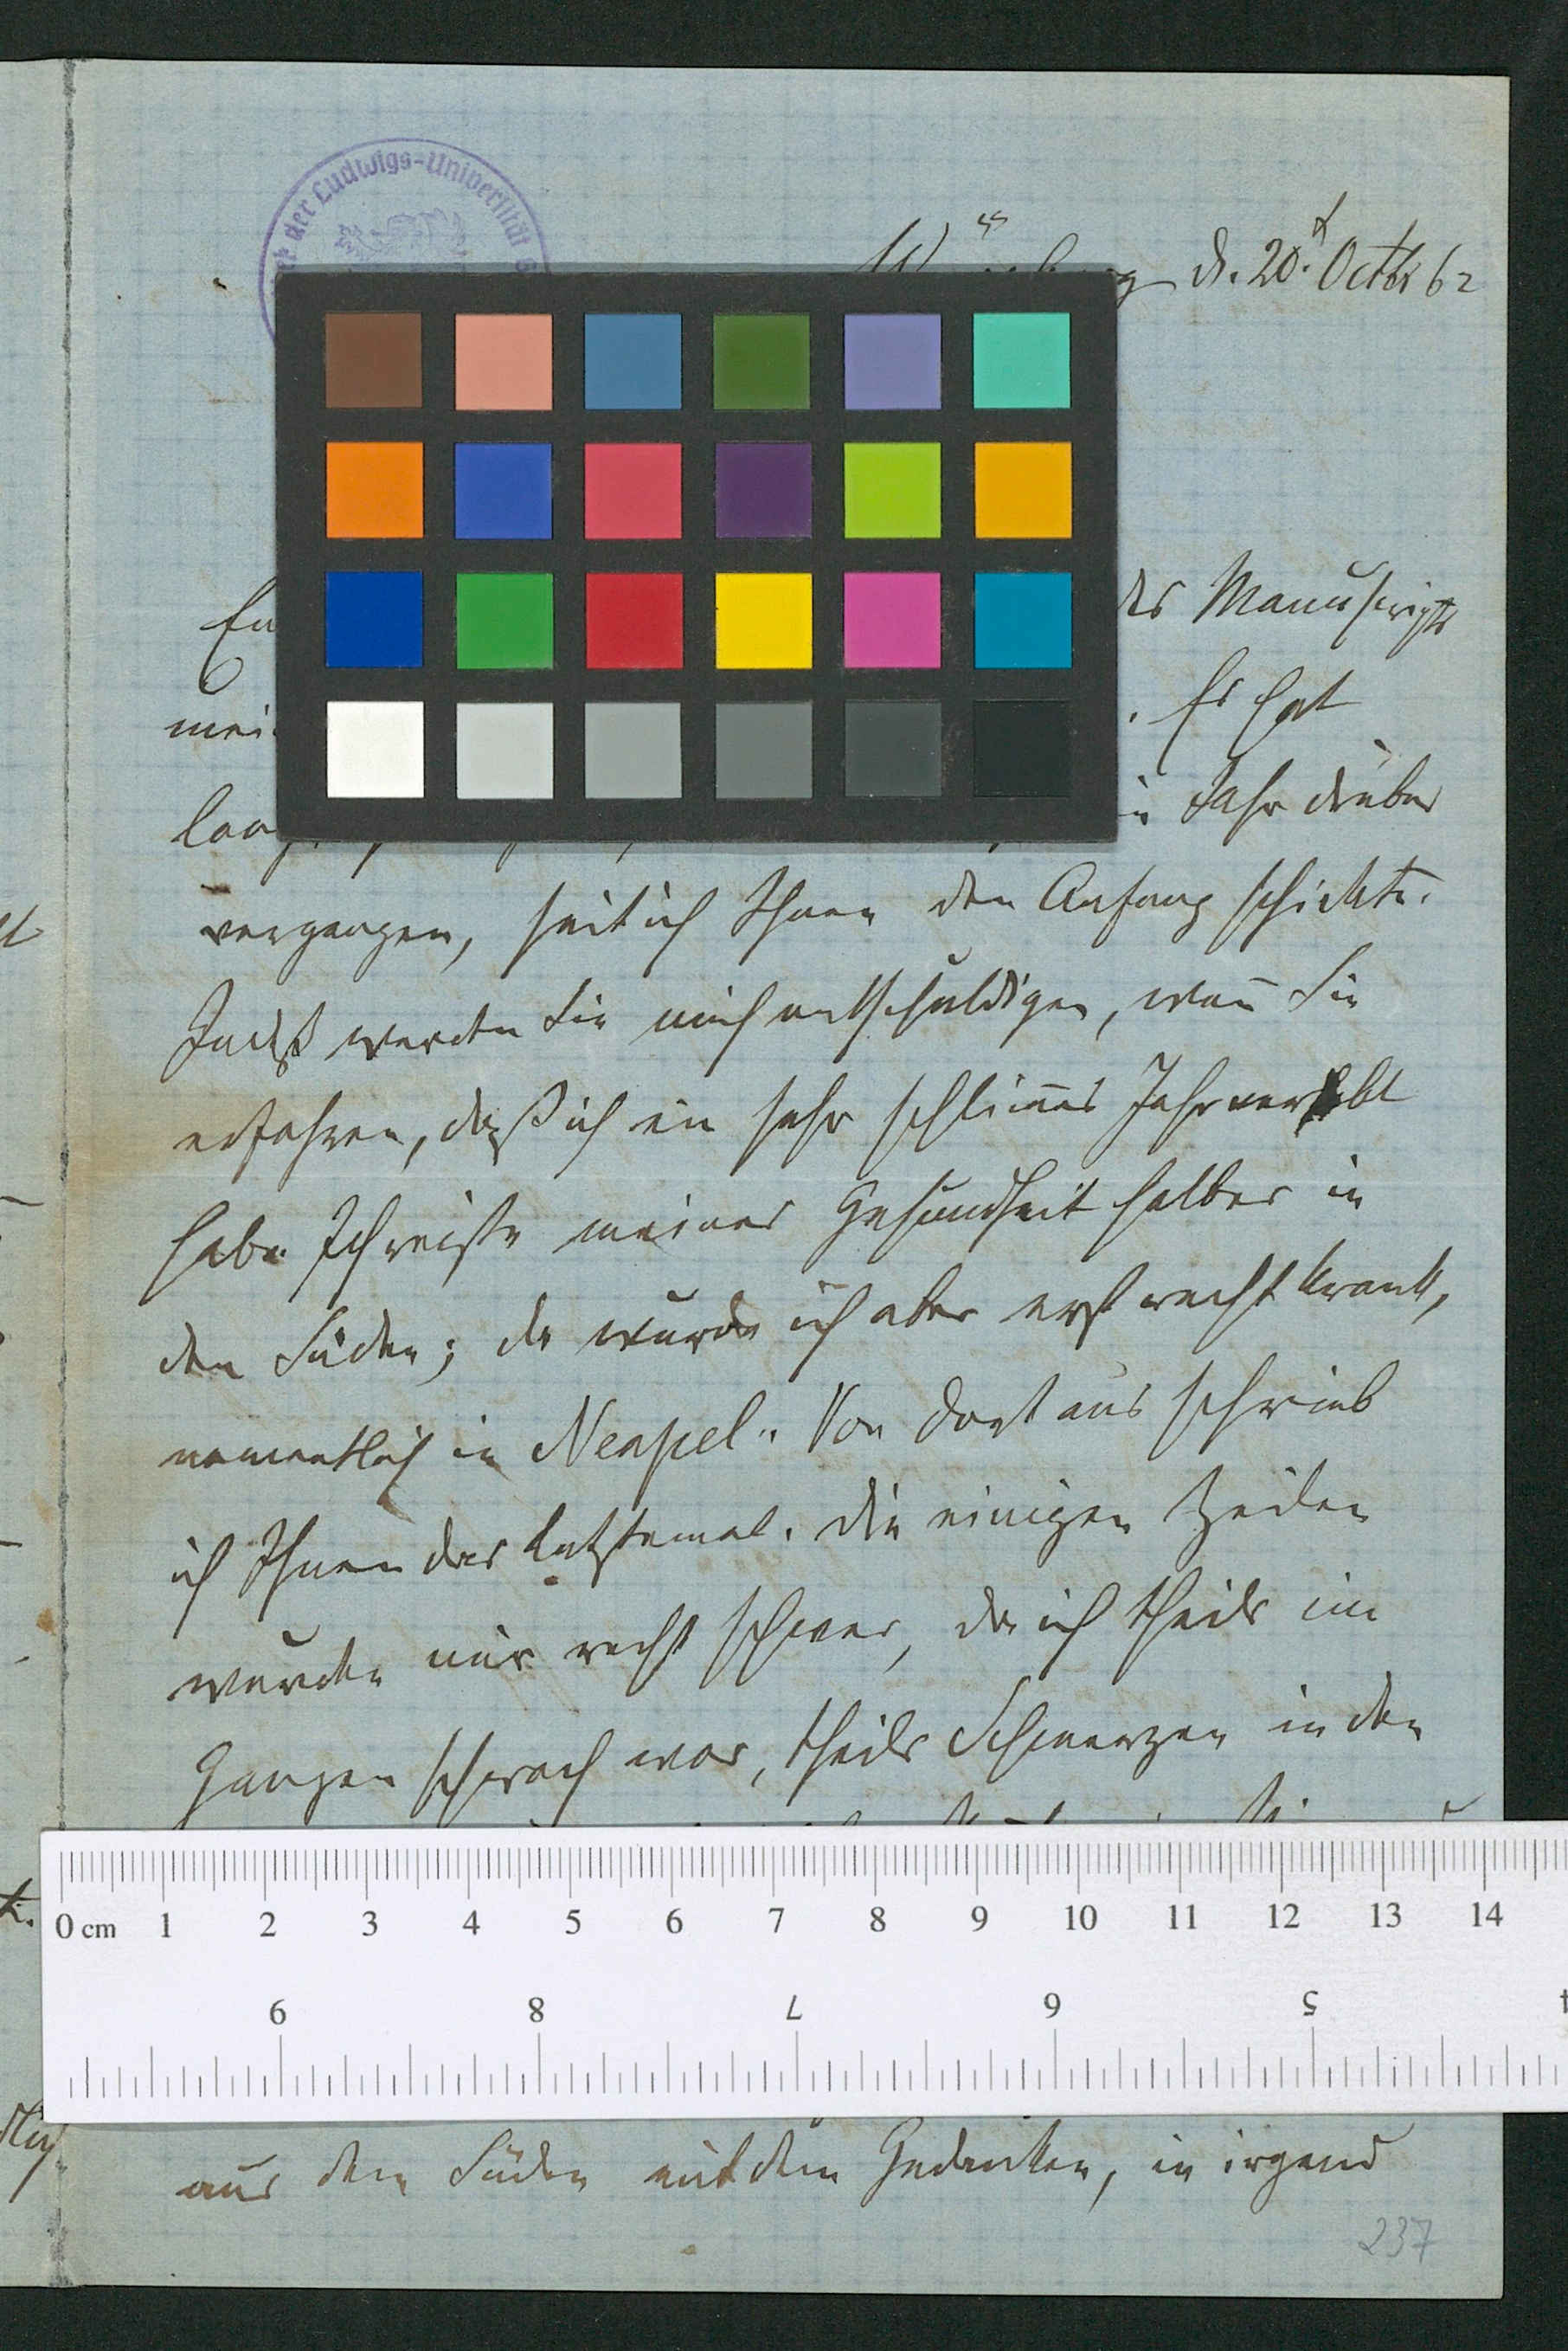 der Ludwigs-Universität
d. 20. Octbr 62
des Manuscripts
. Es hat
Jahr drüber
vergangen, seit ich Ihnen den Anfang schickte.
Indeß werden Sie mich entschuldigen, wen̄ Sie
erfahren, daß ich ein sehr schlim̄es Jahr verlebt
habe. Ich reiste meiner Gesundheit halber in
den Süden; da wurde ich aber erst recht krank,
namentlich in Neapel. Von dort aus schrieb
ich Ihnen das letztemal. Die einigen Zeilen
wurden mir recht schwer, da ich theils im
Ganzen schwach war, theils Schmerzen in den
0 cm 1 2 3 4 5 6 7 8 9 10 11 12 13 14
9 8 7 6 5
aus dem Süden mit dem Gedanken, in irgend
237